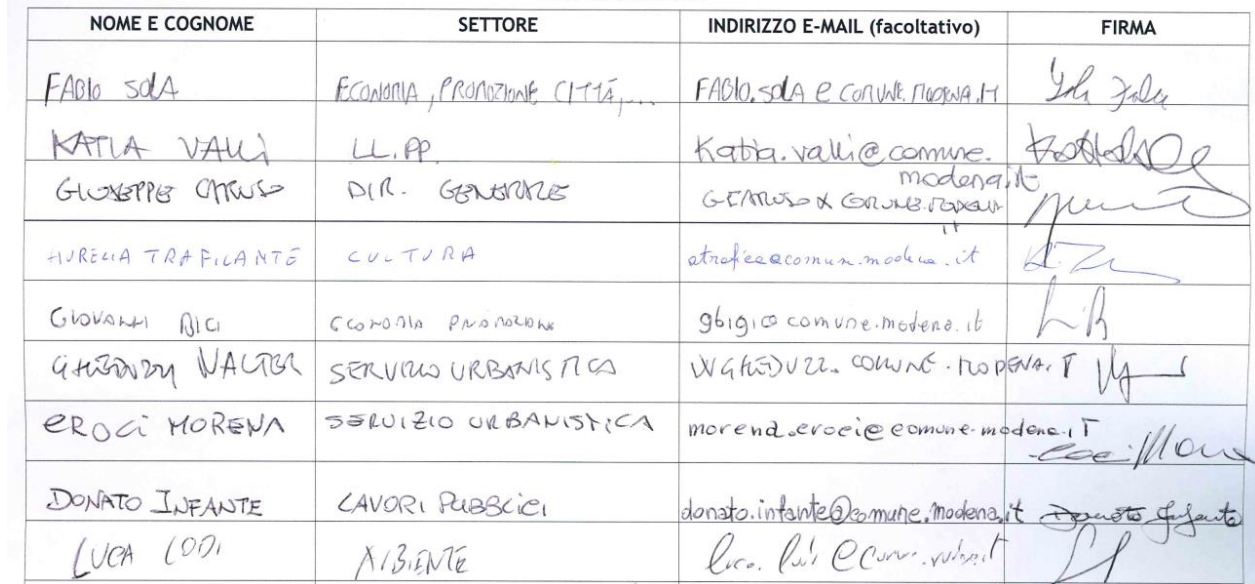 NOME E COGNOME SETTORE INDIRIZZO E-MAIL (facoltativo) FIRMA
FABIO SOLA ECONOMIA, PROMOZIONE CITTÀ,... FABIO.SOLA@COMUNE.MODENA.IT
KATIA VALLI LL.PP. Katia.valli@comune.
modena.it
GIUSEPPE CARUSO DIR. GENERALE
AURELIA TRAFICANTE CULTURA
GIOVANNI BIGI ECONOMIA PROMOZIONE gbigi@comune.modena.it
WALTER SERVIZIO URBANISTICA
EROCI MORENA SERVIZIO URBANISTICA morena.eroci@comune.modena.IT
DONATO INFANTE LAVORI PUBBLICI donato.infante@comune.modena.it Donato Infante
LUCA LODI AMBIENTE